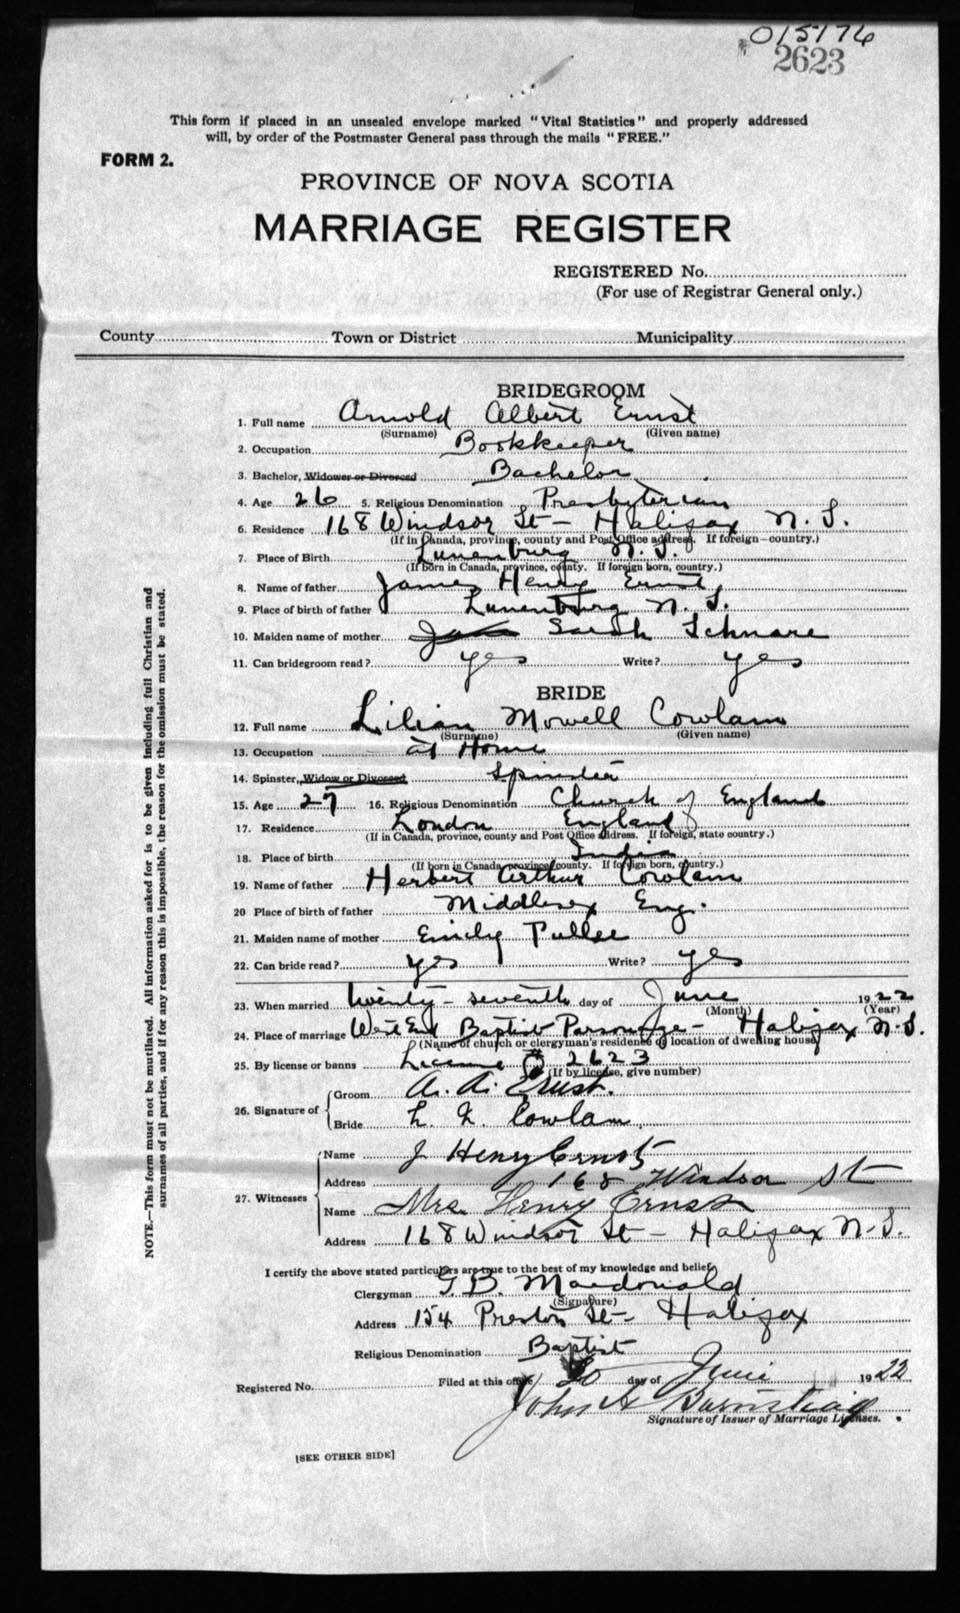 015176
2623
This form if placed in an unsealed envelope marked "Vital Statistics" and properly addressed
will, by order of the Postmaster General pass through the mails "FREE."
FORM 2.
PROVINCE OF NOVA SCOTIA
MARRIAGE REGISTER
REGISTERED No.
(For use of Registrar General only.)
County Town or District Municipality
BRIDEGROOM
1. Full name Arnold Albert Ernst
(Surname) (Given name)
2. Occupation Bookkeeper
3. Bachelor, Widower or Divorced Bachelor
4. Age 26 5. Religious Denomination Presbyterian
6. Residence 168 Windsor St - Halifax N. S.
(If in Canada, province, county and Post Office address. If foreign—country.)
7. Place of Birth Lunenburg N. S.
(If born in Canada, province, county. If foreign born, country.)
8. Name of father James Henry Ernst
9. Place of birth of father Lunenburg N. S.
10. Maiden name of mother Sarah Schnare
11. Can bridegroom read? yes Write? yes
BRIDE
12. Full name Lilian Mowell Cowlam
(Surname) (Given name)
13. Occupation at Home
14. Spinster, Widow or Divorced Spinster
15. Age 27 16. Religious Denomination Church of England
17. Residence London England
(If in Canada, province, county and Post Office address. If foreign, state country.)
18. Place of birth India
(If born in Canada, province, county. If foreign born, country.)
19. Name of father Herbert Arthur Cowlam
20 Place of birth of father Middlesex Eng.
21. Maiden name of mother Emily
22. Can bride read? yes Write? yes
23. When married twenty-seventh day of June 1922
(Month) (Year)
24. Place of marriage West End Baptist Parsonage - Halifax N.S.
(Name of church or clergyman's residence or location of dwelling house)
25. By license or banns License # 2623
(If by license, give number)
26. Signature of
Groom A. A. Ernst.
Bride Cowlam
27. Witnesses
Name J Henry Ernst
Address 168 Windsor St
Name Mrs. Henry Ernst
Address 168 Windsor St - Halifax N.S.
I certify the above stated particulars are true to the best of my knowledge and belief,
Clergyman G. B. Macdonald
(Signature)
Address 154 Preston St - Halifax
Religious Denomination Baptist
Registered No. Filed at this office day of June 1922
John A
Signature of Issuer of Marriage Licenses.
[SEE OTHER SIDE]
NOTE.—This form must not be mutilated. All information asked for is to be given including full Christian and
surnames of all parties, and if for any reason this is impossible, the reason for the omission must be stated.